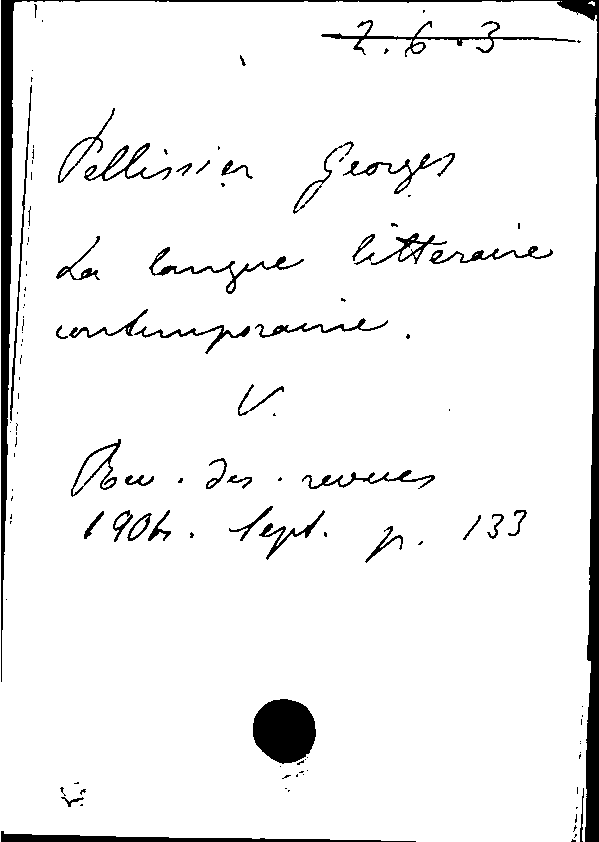 2.6.3
Pellissier Georges
La langue litteraire
contemporaine.
V.
Rev. des. revues
Sept. p. 133